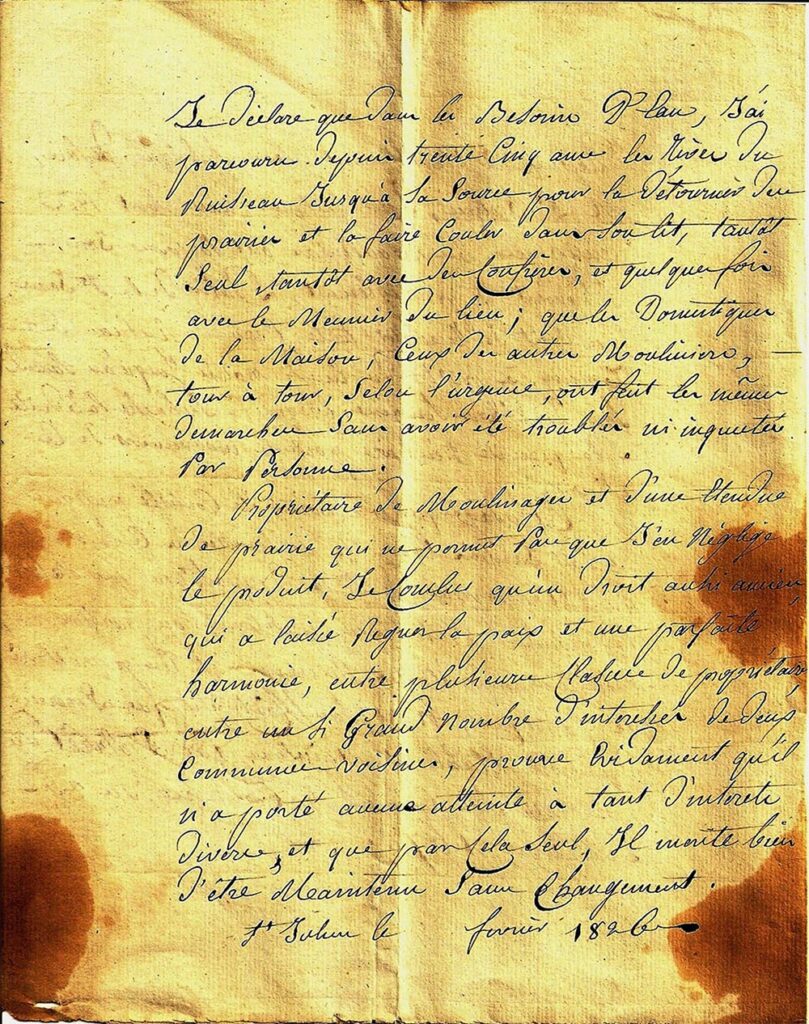 Je déclare que dans les Besoins D'Eau, J'ai
parcouru Depuis trente Cinq ans les Rives du
Ruisseau Jusqu'à Sa Source pour la Détourner des
prairies et la faire Couler dans Son lit, tantôt
Seul, tantôt avec des Confrères, et quelques fois
avec le Meunier du lieu; que les Domestiques
de la Maison, Ceux des autres Mouliniers,
tour à tour, Selon l'urgence, ont fait les mêmes
demarches Sans avoir été troublés ni inquietés
Par Personne.
Propriétaire de Moulinages et d'une Etendue
de prairie qui ne permet Pas que J'en Néglige
le produit, Je Conclus qu'un Droit aussi ancien,
qui a laissé Regner la paix et une parfaite
harmonie, entre plusieurs Classes de propriétaires
entre un Si Grand Nombre D'interessés de deux
Communes voisines, prouve Evidament qu'il
n'a porté aucune atteinte à tant D'interets
Divers, et que par Cela Seul, Il merite bien
D'être Maintenu Sans Changement.
St Julien le fevrier 1826